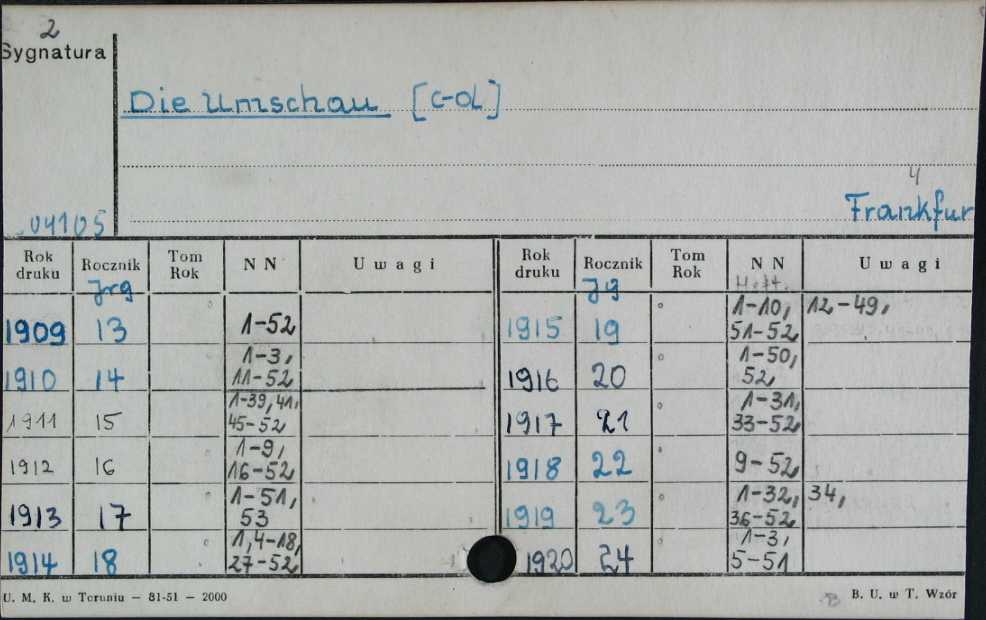 2
Sygnatura
Die Umschau [c-d]
4
Frankfur
04105
Rok druku Rocznik Tom Rok NN Uwagi Rok druku Rocznik Tom Rok NN Uwagi
Jrg Jg
1909 13 1-52 1915 19 1-10, 12-49, 51-52
1910 14 1-3, 11-52 1916 20 1-50, 52
1911 15 1-39, 41, 45-52 1917 21 1-31, 33-52
1912 16 1-9, 16-52 1918 22 9-52
1913 17 1-51, 53 1919 23 1-32, 34, 36-52
1914 18 1, 4-18, 27-52 1920 24 1-3, 5-51
U. M. K. w Toruniu — 81-51 — 2000 B. U. w T. Wzór